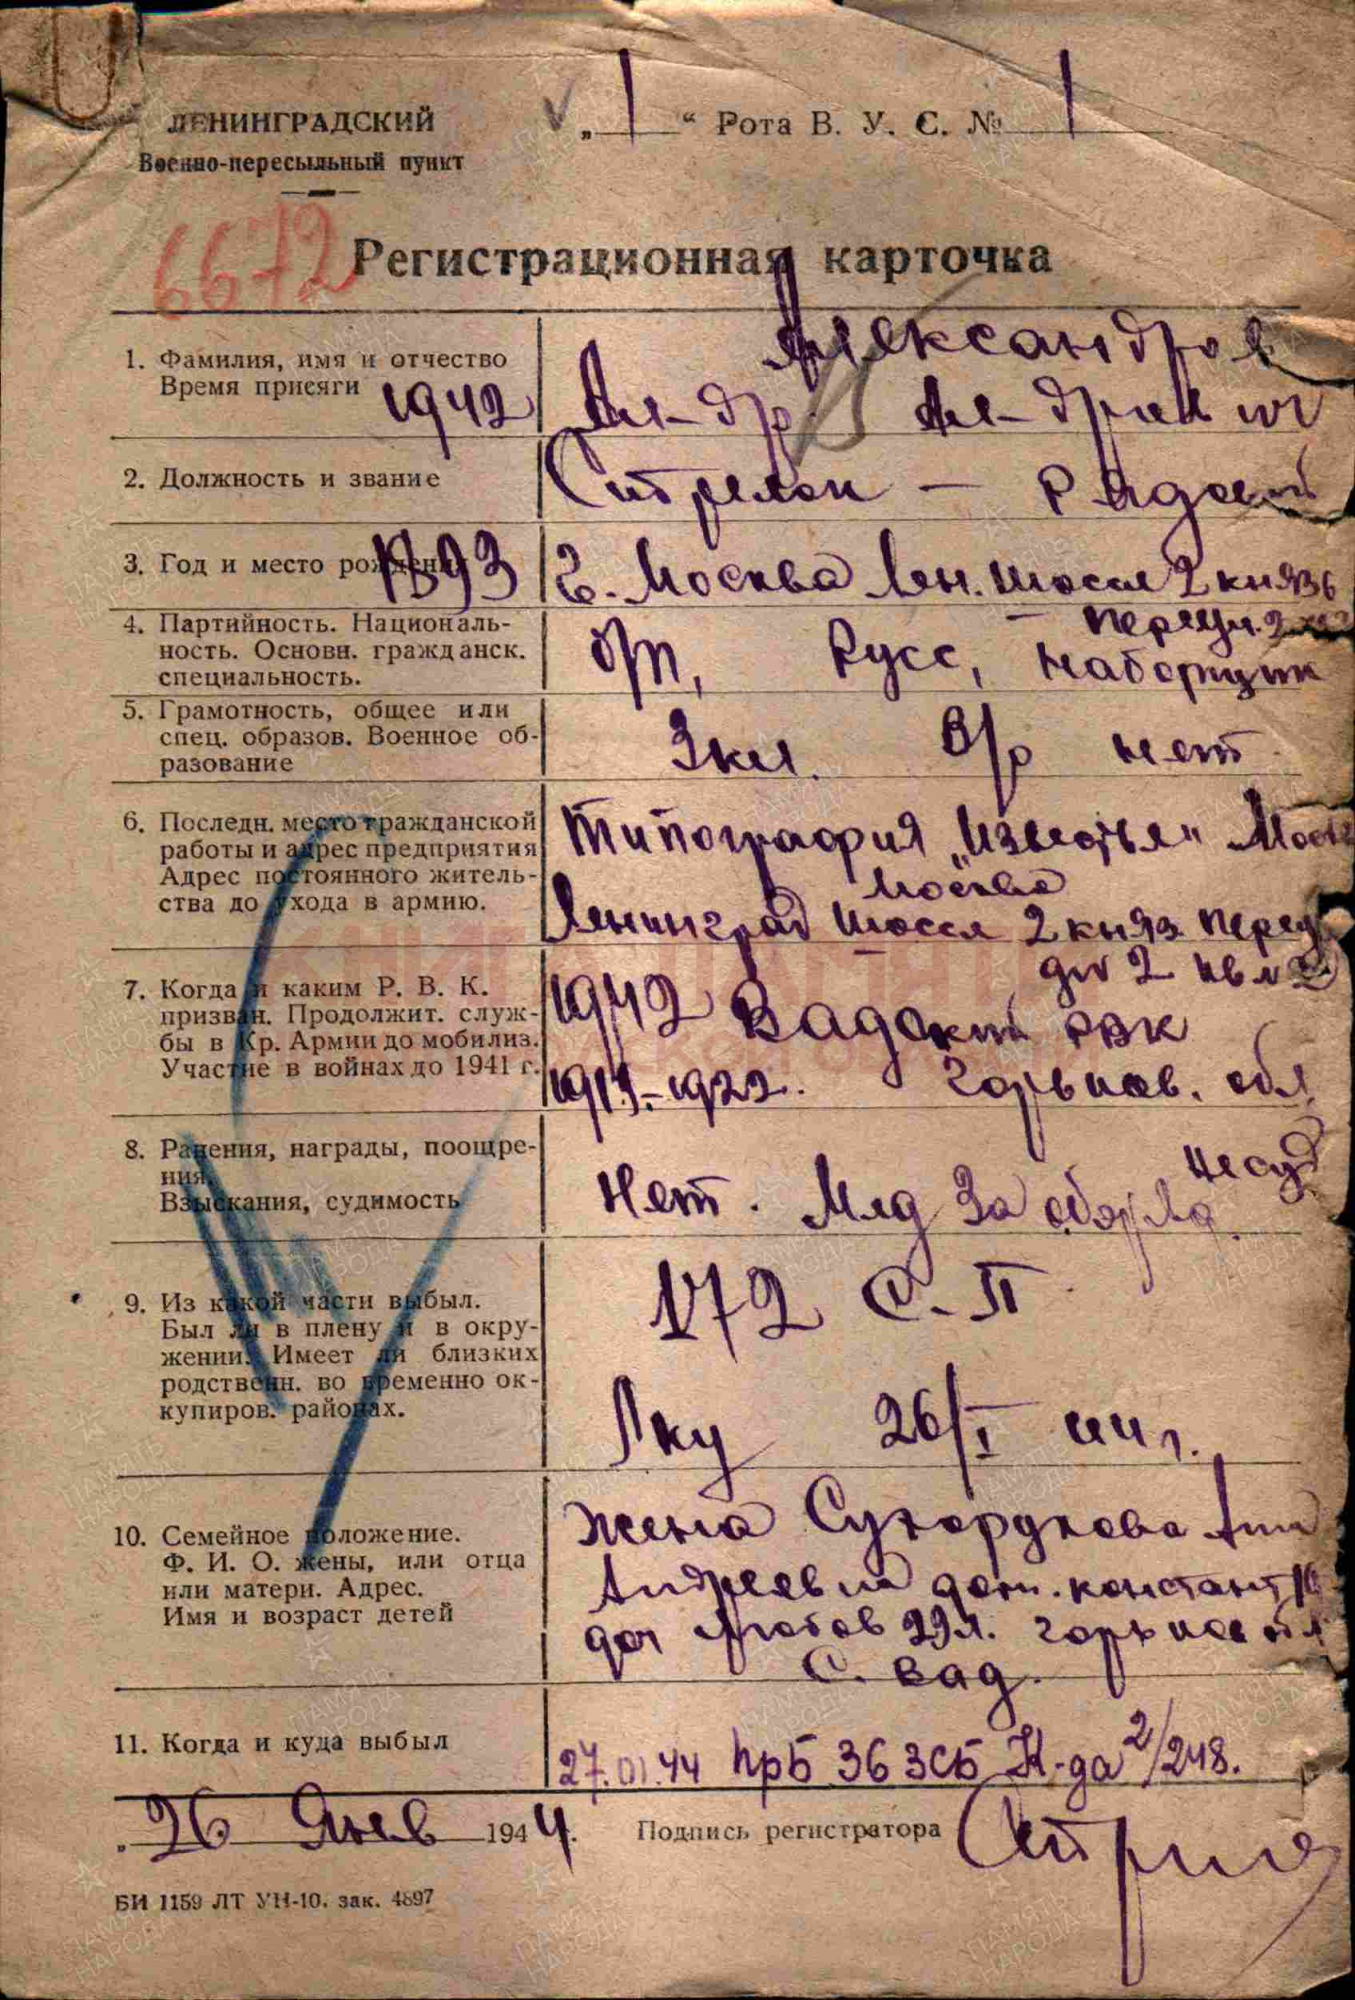 ЛЕНИНГРАДСКИЙ
Военно-пересыльный пункт
„ 1 “ Рота В. У. С. № 1
6672
Регистрационная карточка
1. Фамилия, имя и отчество
Время присяги 1942
Александров
Ал-др. Ал-дрович
2. Должность и звание
Стрелок — рядовой
3. Год и место рождения 1893
г. Москва Лен. шоссе 2 княз
4. Партийность. Националь-
ность. Основн. гражданск.
специальность.
переул. 2
б/п, Русс, наборщик
5. Грамотность, общее или
спец. образов. Военное об-
разование
3 кл. В/о нет
6. Последн. место гражданской
работы и адрес предприятия
Адрес постоянного житель-
ства до ухода в армию.
Типография „Известья“ Моск
Москва
Ленинград шоссе 2 княз перед
7. Когда и каким Р. В. К.
призван. Продолжит. служ-
бы в Кр. Армии до мобилиз.
Участие в войнах до 1941 г.
дм 2 кв
1942 Вадский РВК
1922. Горьков. обл.
8. Ранения, награды, поощре-
ния.
Взыскания, судимость
Несуд
Нет. Мед за обор
9. Из какой части выбыл.
Был ли в плену и в окру-
жении. Имеет ли близких
родственн. во временно ок-
купиров. районах.
172 С-П
26/I 44 г.
10. Семейное положение.
Ф. И. О. жены, или отца
или матери. Адрес.
Имя и возраст детей
жена Сухорукова
Андреевна
доч 29 л. Горьков обл
с. Вад.
11. Когда и куда выбыл
27.01.44 прб 36 ЗСБ К-да 2/248.
„ 26 Янв 1944.
Подпись регистратора
БИ 1159 ЛТ УН-10. зак. 4897
КНИГА ПАМЯТИ
ПАМЯТЬ НАРОДА